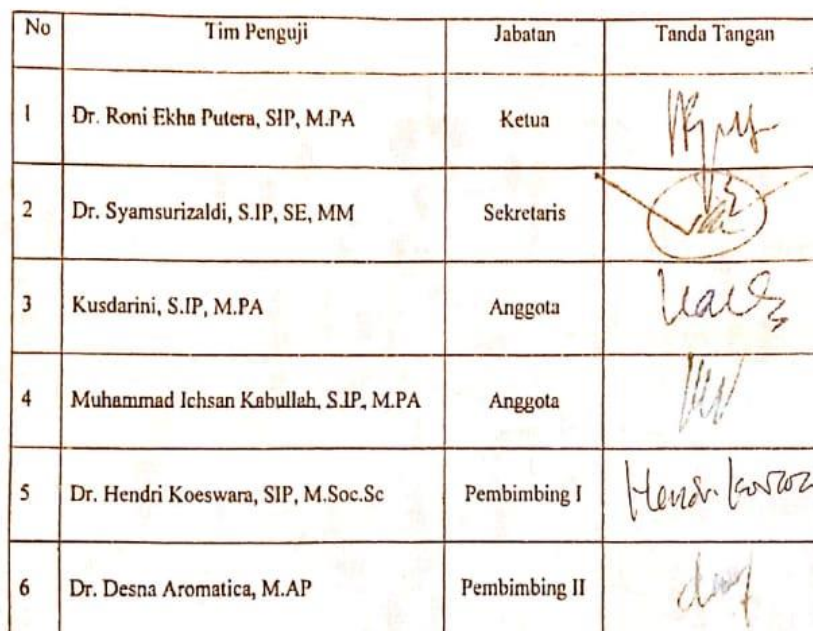 No Tim Penguji Jabatan Tanda Tangan
1 Dr. Roni Ekha Putera, SIP, M.PA Ketua
2 Dr. Syamsurizaldi, S.IP, SE, MM Sekretaris
3 Kusdarini, S.IP, M.PA Anggota
4 Muhammad Ichsan Kabullah, S.IP, M.PA Anggota
5 Dr. Hendri Koeswara, SIP, M.Soc.Sc Pembimbing I
6 Dr. Desna Aromatica, M.AP Pembimbing II